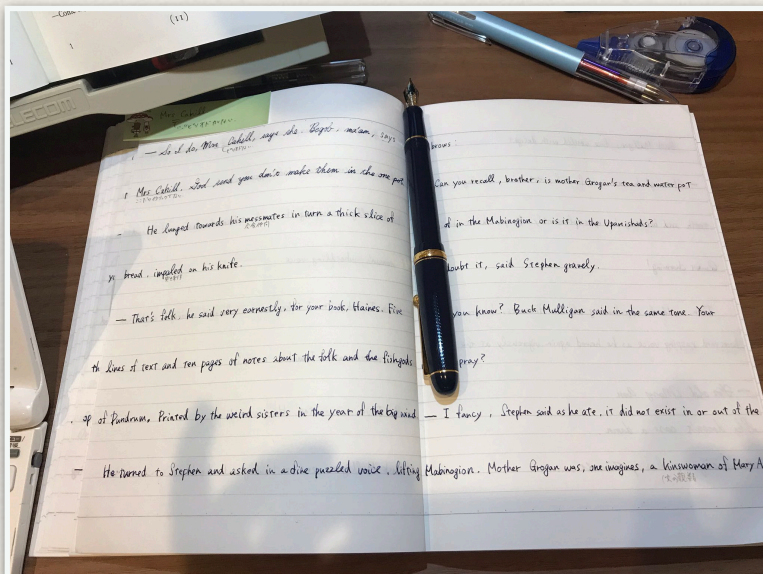 -Cond
(11)
1
ELECOM
Mrs Cahill
— So I do, Mrs Cahill, says she. Begob, ma'am, says
Mrs Cahill. God send you don't make them in the one pot
He lunged towards his messmates in turn a thick slice of
bread, impaled on his knife.
— That's folk, he said very earnestly, for your book, Haines. Five
lines of text and ten pages of notes about the folk and the fishgods
of Dundrum. Printed by the weird sisters in the year of the big wind
He turned to Stephen and asked in a fine puzzled voice, lifting
brows:
Can you recall, brother, is mother Grogan's tea and water pot
of in the Mabinogion or is it in the Upanishads?
doubt it, said Stephen gravely.
you know? Buck Mulligan said in the same tone. Your
pray?
— I fancy, Stephen said as he ate, it did not exist in or out of the
Mabinogion. Mother Grogan was, one imagines, a kinswoman of Mary A